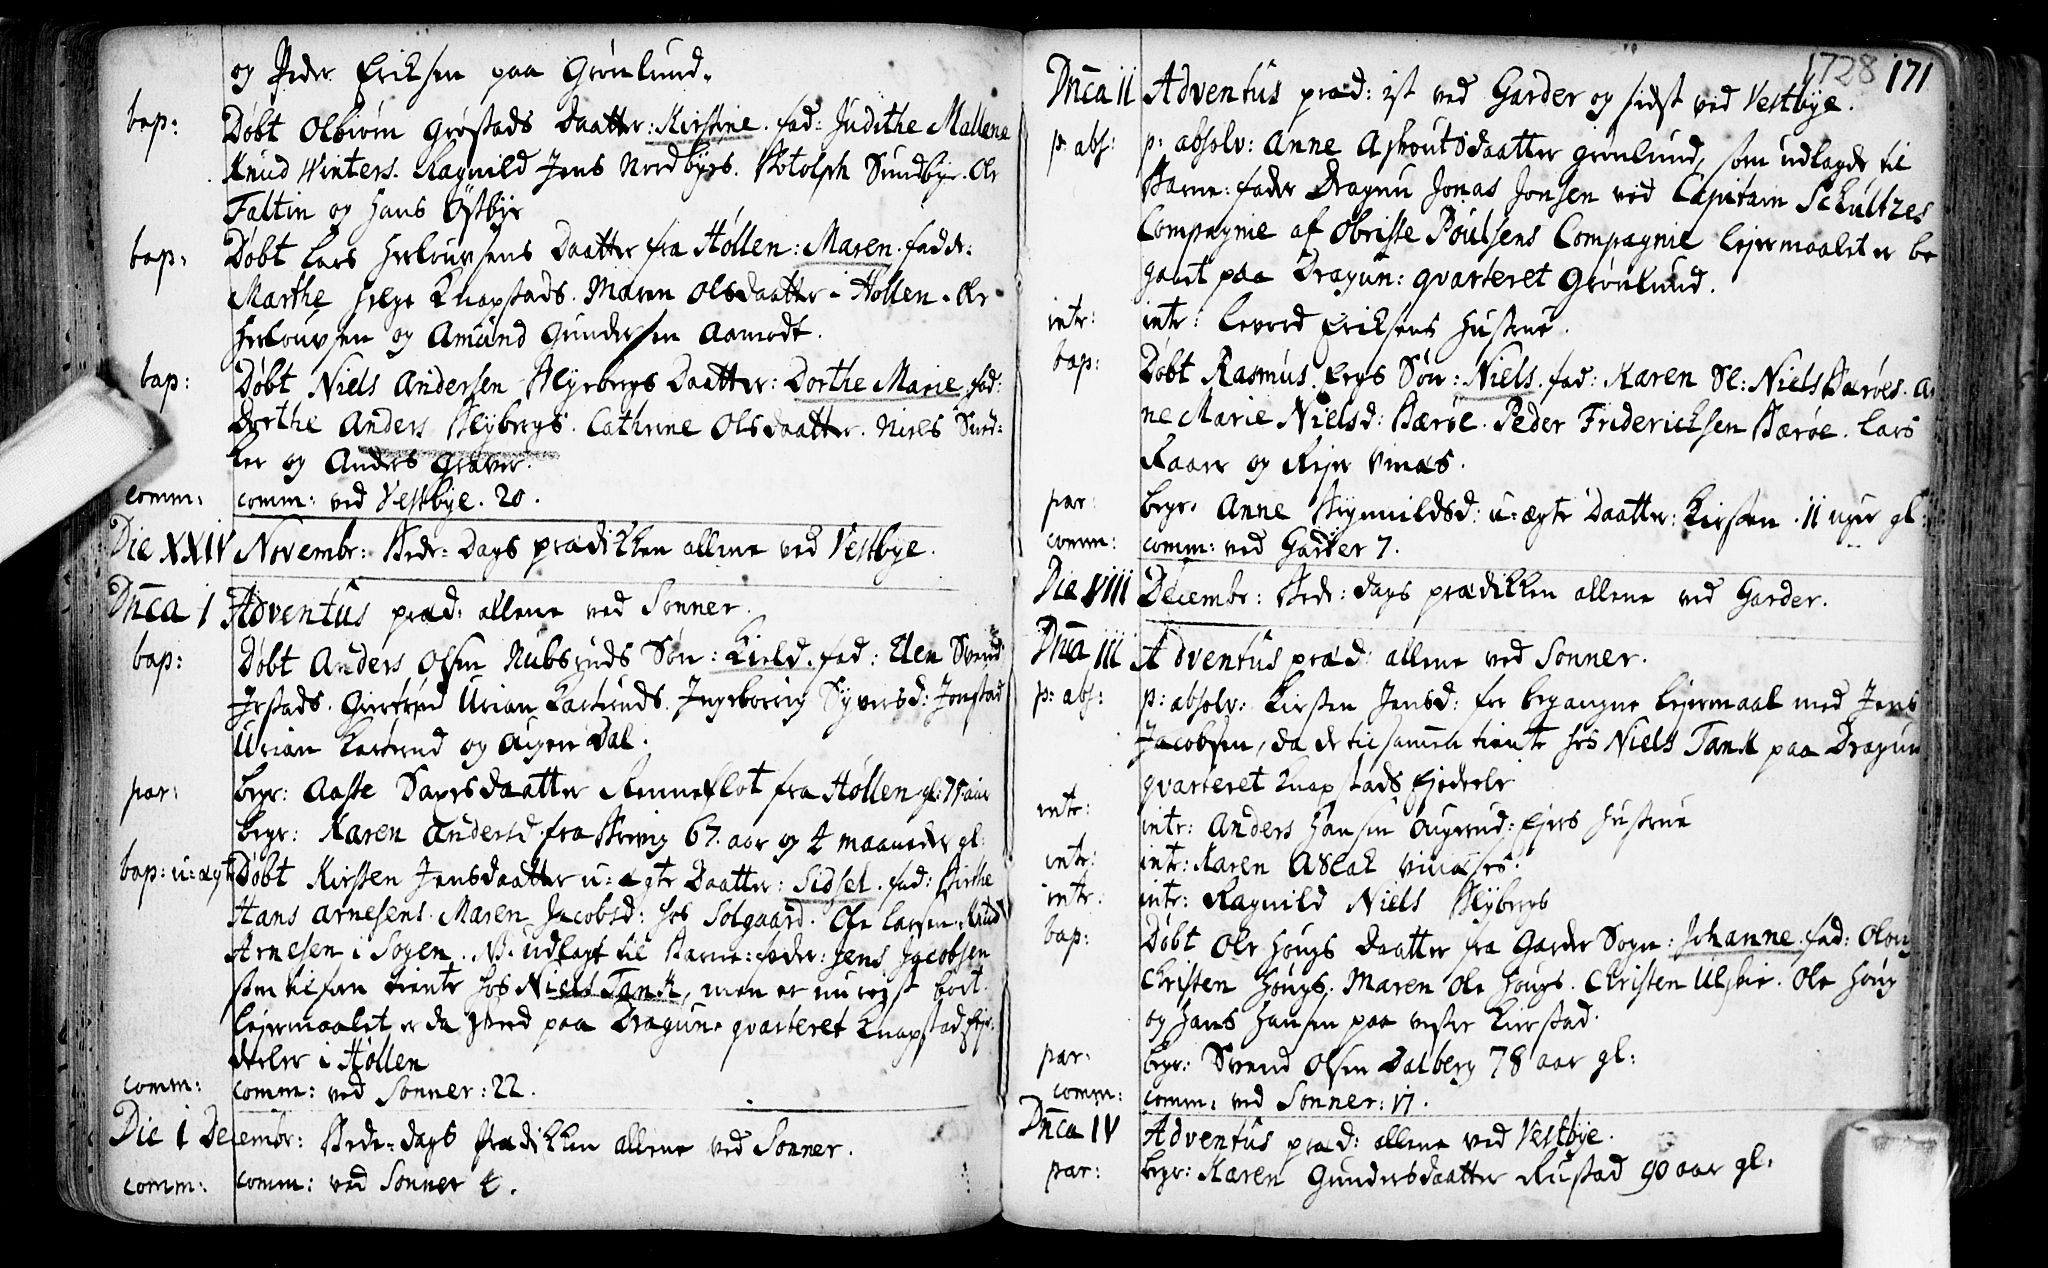 og Peder Eriksen paa Grønlund.
bap: Døbt Olbiørn Grøstads Daatter: Kirstine. fad: Judithe Mallene
Knud Winters. Ragnild Jens Nordbyes. Botolph Sundbye. Ole
Faltin og Hans Østbye
bap: Døbt Lars Herlouvsens Daatter fra Høllen: Maren. fadd:
Marthe Helge Knapstads. Maren Olsdaatter i Høllen. Ole
Herlouvsen og Amund Gundersen Aamodt.
bap: Døbt Niels Andersen Blybergs Daatter: Dorthe Marie. fad:
Dorthe Anders Blybergs. Cathrine Olsdaatter. Niels Sned-
ker og Anders Graver.
comm: comm: ved Vestbye. 20.
Die XXIV Novembr: Bede-Dags prædikken allene ved Vestbye.
Dnca I Adventus præd: allene ved Sonner.
bap: Døbt Anders Olsen Rubsruds Søn: Kield. fad: Elen Svend
Jrstads. Giertrud Urian Kaserud. Ingeborrig Syversd: Jonstad
Urian Kaserud og Augen Dal.
par: begr: Aasse Baarsdaatter Renneflot fra Høllen gl: 75 aar
begr: Karen Andersd. fra Berrig 67. aar og 4 maaneder gl:
bap: u-ægt Døbt Kirsten Jensdaatter u-ægte Daatter: Sidsel. fad: Birthe
Hans Arnesens. Maren Jacobsd: hos Solgaard. Ole Larsen. Knud
Arnesen i Sogen. NB. udlagt til Barne-fader: Jens Jacobsen
som tilforn tiente hos Niels Tank, men er nu reist bort.
Lejermaalet er da skeed paa Dragun-qvarteret Knapstad fier-
deeler i Høllen
comm: comm: ved Sonner: 22.
Die I Decembr: Bede-dags prædikken allene ved Sonner.
comm: comm: ved Sonner 4.
1728 171
Dnca II Adventus præd: 1st ved Garder og sidst ved Vestbye.
p: abs: p: absolv: Anne Askoutsdaatter Grønlund, som udlagde til
Barne-fader Dragun Jonas Jonsen ved Capitain Schultzes
Compagnie af Obriste Poulsens Compagnie Lejermaalet er be
gaaet paa Dragun-qvarteret Grønlund.
intr: intr: Levord Eriksens Hustrue.
bap: Døbt Rasmus Ergs Søn: Niels. fad: Karen Sl: Niels Bærøes. An
ne Marie Nielsd: Bærøe. Peder Friderichsen Bærøe. Lars
Kaare og Rejer Vinæs.
par: begr. Anne Bryniildsd: u-ægte Daatter: Kirsten. 11 uger gl:
comm: comm: ved Garder 7.
Die VIII Decembr: Bede-dags prædikken allene ved Garder.
Dnca III Adventus præd: allene ved Sonner.
p: abs: p: absolv: Kirsten Jensd: for begangne lejermaal med Jens
Jacobsen, da de tilsammen tiente hos Niels Tank paa Dragun
qvarteret Knapstads fjedeele
intr: intr: Anders Hansen Augerud-Ejes Hustrue
intr: intr: Karen Aslak Vinæses.
intr: intr: Ragnild Niels Blybergs
bap: Døbt Ole Hougs Daatter fra Garder Sogn: Johanne. fad: Oloug
Christen Hougs. Maren Ole Hougs. Christen Ulsbie. Ole Houg
og Hans Hansen paa vestre Kierstad.
par: begr: Svend Olsen Dalberg 78 aar gl:
comm: comm: ved Sonner: 17.
Dnca IV Adventus præd: allene ved Vestbye.
par: begr: Karen Gundersdaatter Rustad 90 aar gl: